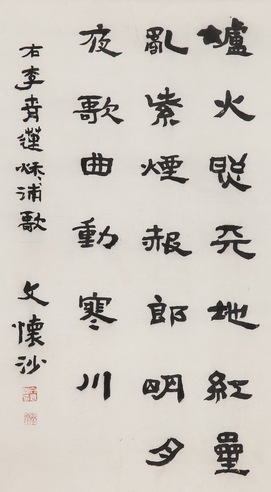 爐火照天地紅星
亂紫煙赧郎明月
夜歌曲動寒川
右李青蓮秋浦歌 文懷沙